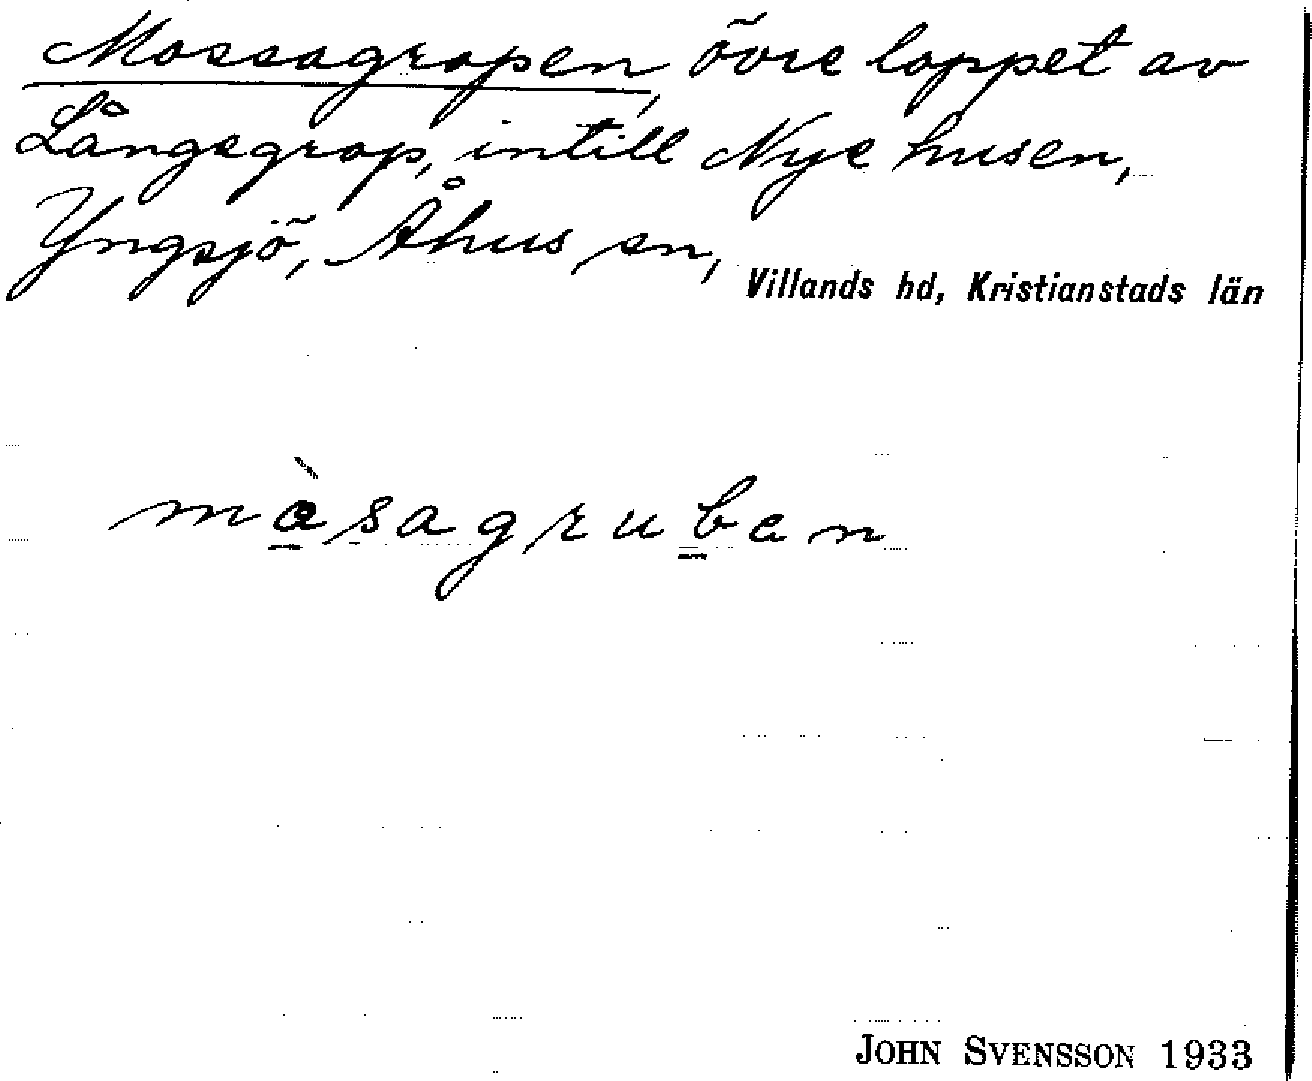 Mossagropen, övre loppet av
Långegrop, intill Nye husen,
Yngsjö, Åhus sn,
Villands hd, Kristianstads län
màsagruben
JOHN SVENSSON 1933